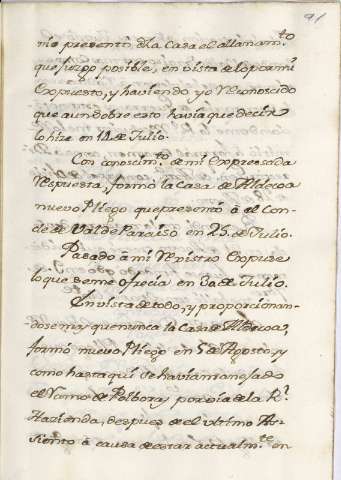 91
mio presentò dha Casa el allanam.to
que juzgo posible, en vista delo por mi
Expuesto, y haviendo yo Reconocido
que aun sobre esto havia que decir
lo hize en 12 de Julio.
Con conocim.to de mi Expresada
Respuesta, formó la Casa de Aldecoa
nuevo Pliego que presentó à el Con-
de de Valde Paraiso en 25 de Julio.
Pasado à mi Rexistro Expuse
lo que seme ofrecia en 30 de Julio.
En vista de todo, y proporcionan-
dose mas que nunca la Casa de Aldecoa,
formó nuevo Pliego en 5 de Agosto, y
como hasta qui se havia manejado
el Ramo de Polbora, y por via de la R.l
Hazienda, despues de el ultimo As-
siento à causa de estar actualm.te en